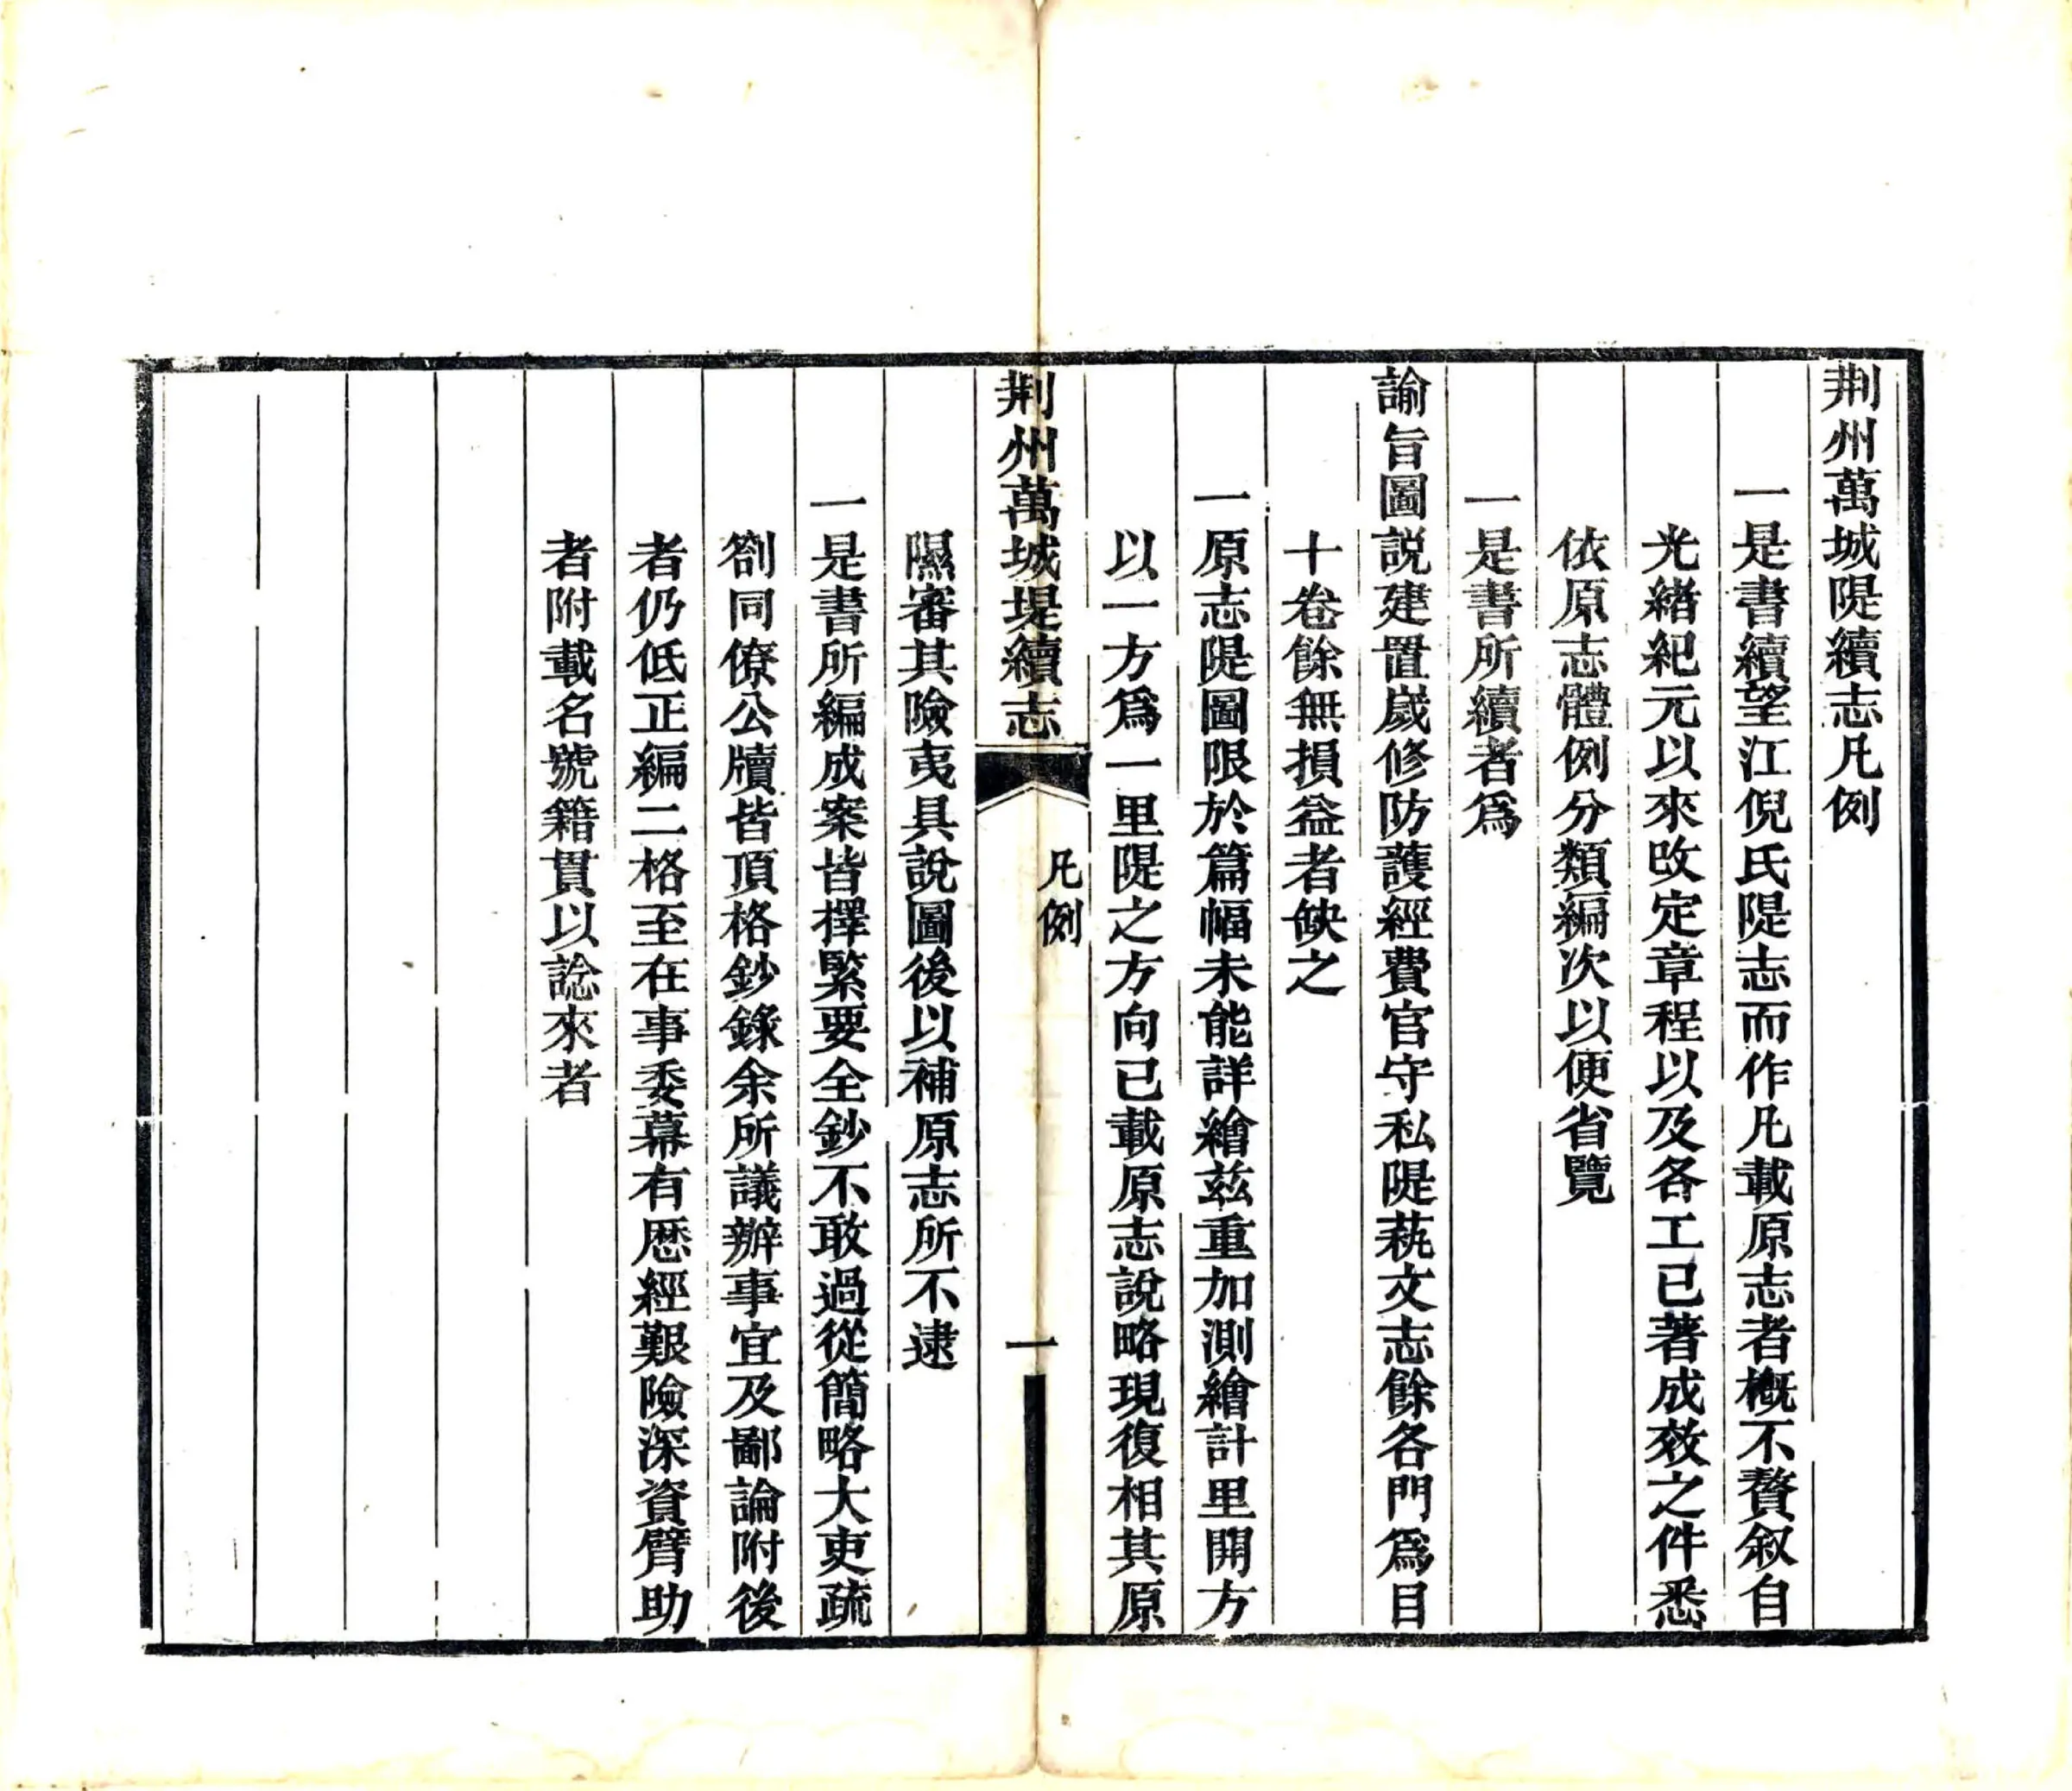 荆州萬城隄續志凡例
一是書續望江倪氏隄志而作凡載原志者槪不贅叙自
光緒紀元以來改定章程以及各工已著成效之件悉
依原志體例分類編次以便省覽
一是書所續者爲
諭旨圖説建置嵗修防護經費官守私隄蓺文志餘各門爲目
十卷餘無損益者缺之
一原志隄圖限於篇幅未能詳繪兹重加測繪計里開方
以一方爲一里隄之方向已載原志說略現復相其原
荆州萬城堤續志
凡例
一
隰審其險夷具說圖後以補原志所不逮
一是書所編成案皆擇緊要全鈔不敢過從簡略大吏疏
劄同僚公牘皆頂格鈔錄余所議辦事宜及鄙論附後
者仍低正編二格至在事委幕有歴經艱險深資臂助
者附載名號籍貫以諗來者